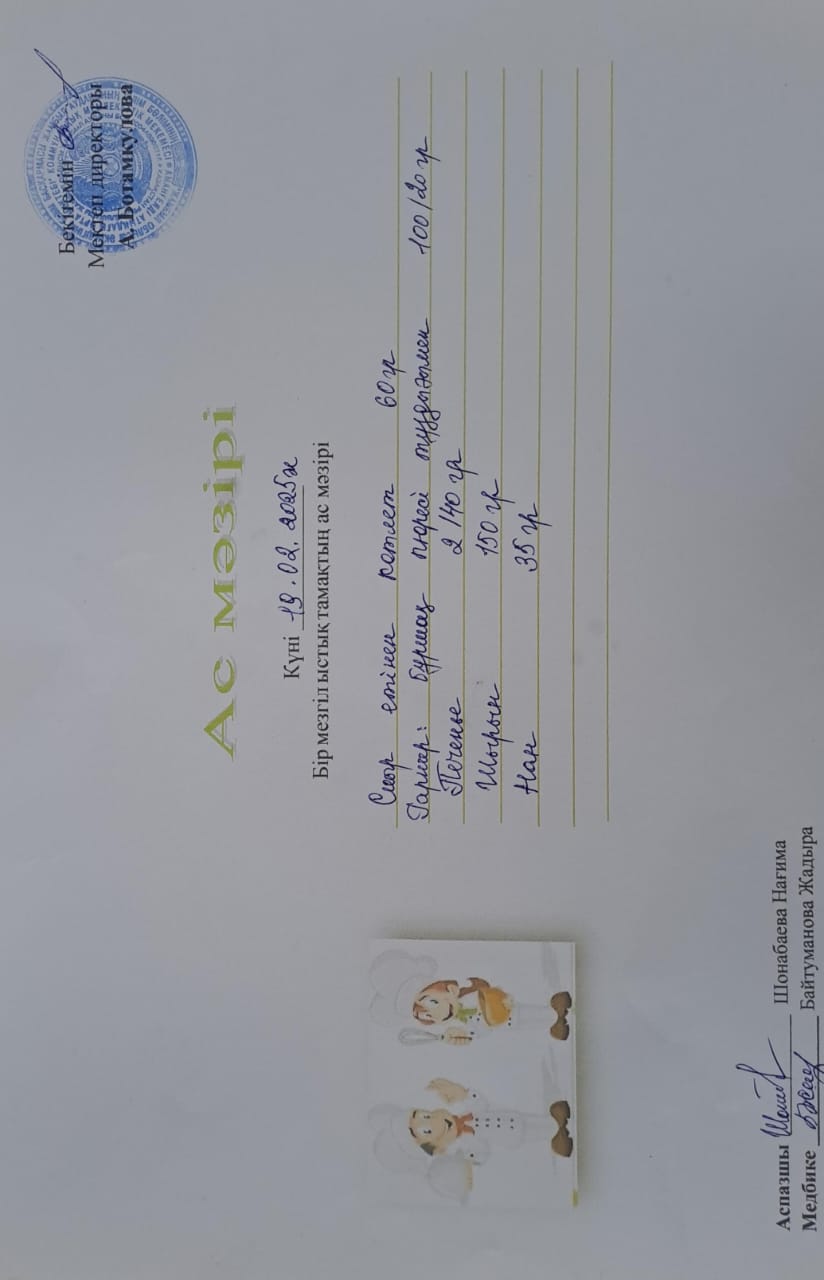 Бекітемін
Мектеп директоры
А. Ботамкулова
Ас мәзірі
Күні 19.02.2025ж
Бір мезгіл ыстық тамақтың ас мәзірі
Сиыр етінен котлет 60 гр
Гарнир: бұршақ пюресі тұздықпен 100/20 гр
Печенье 2/40 гр
Шырын 150 гр
Нан 35 гр
Аспазшы Шонабаева Нағима
Медбике Байтуманова Жадыра